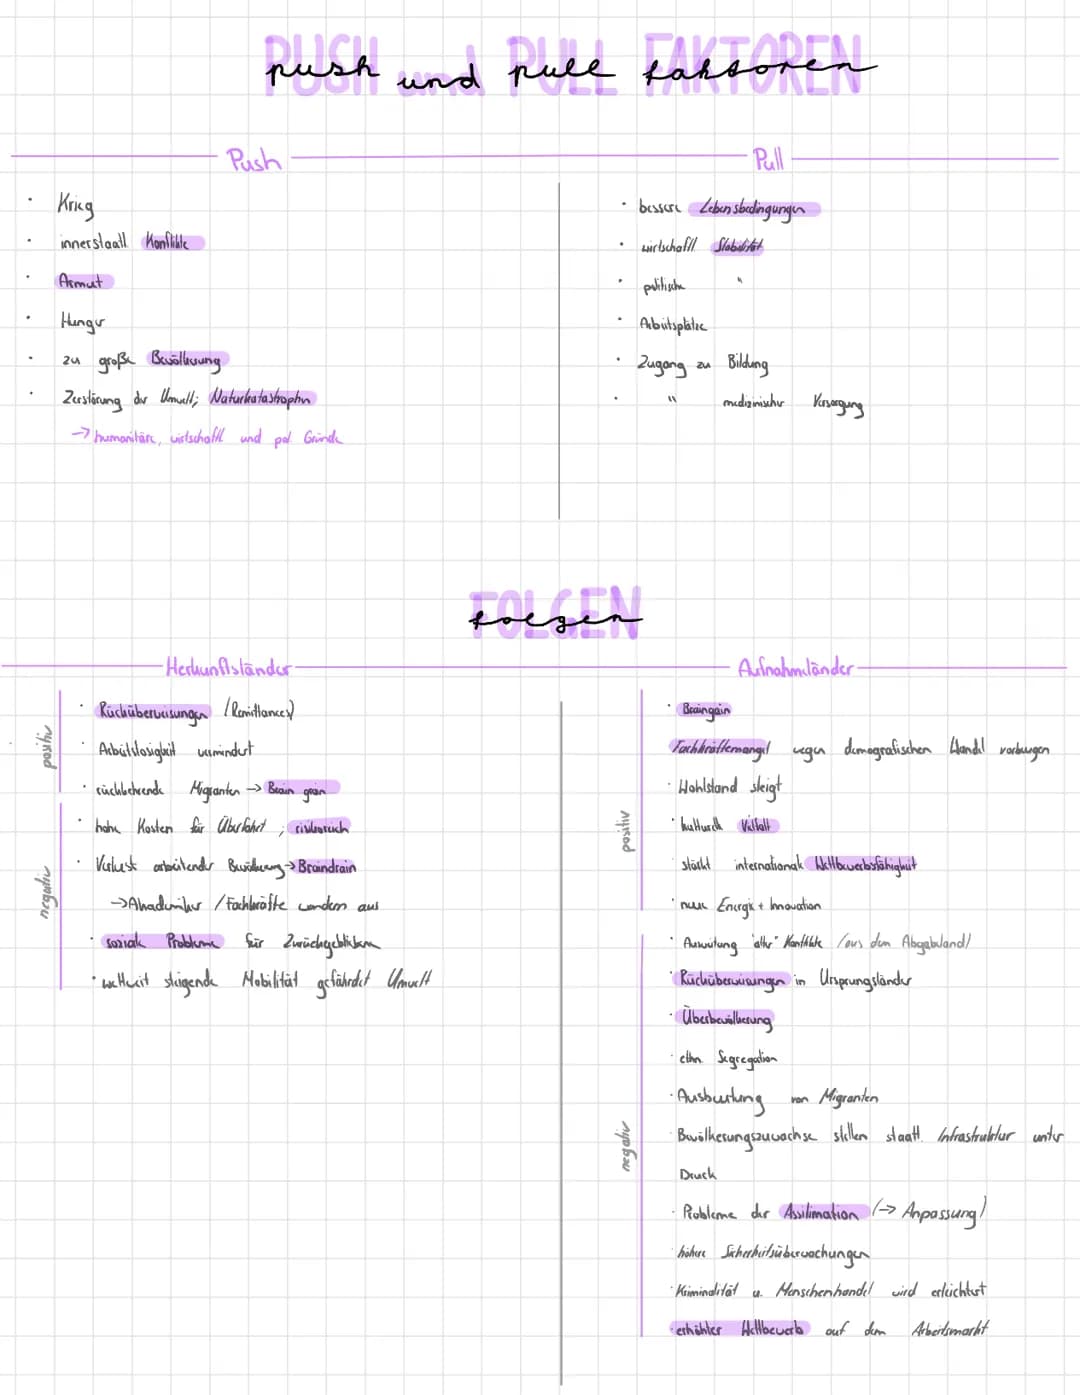 PUSH und PULL FAKTOREN
push und pull faktoren
Push
Pull
· Krieg
· innerstaatl. Konflikte
· Armut
· Hunger
· zu große Bevölkerung
· Zerstörung der Umwelt; Naturkatastrophen
→ humanitäre, wirtschaftl und pol Gründe
· bessere Lebensbedingungen
· wirtschaftl Stabilität
· politische "
· Arbeitsplätze
· Zugang zu Bildung
· " medizinischer Versorgung
FOLGEN
folgen
Herkunftsländer
positiv
· Rücküberweisungen (Remittances)
· Arbeitslosigkeit vermindert
· rückkehrende Migranten → Brain gain
negativ
· hohe Kosten für Überfahrt ; risikoreich
· Verlust arbeitender Bevölkerung → Braindrain
→ Akademiker / Fachkräfte wandern aus
· soziale Probleme für Zurückgebliebene
· weltweit steigende Mobilität gefährdet Umwelt
Aufnahmeländer
positiv
· Braingain
Fachkräftemangel wegen demografischen Wandel vorbeugen
· Wohlstand steigt
· kulturelle Vielfalt
stärkt internationale Wettbewerbsfähigkeit
· neue Energie + Innovation
negativ
· Ausweitung "alter" Konflikte (aus dem Abgabeland)
· Rücküberweisungen in Ursprungsländer
· Überbevölkerung
· ethn. Segregation
· Ausbeutung von Migranten
· Bevölkerungszuwachse stellen staatl. Infrastruktur unter
Druck
· Probleme der Assilimation (→ Anpassung)
· höhere Sicherheitsüberwachungen
· Kriminalität u. Menschenhandel wird erleichtert
· erhöhter Wettbewerb auf dem Arbeitsmarkt